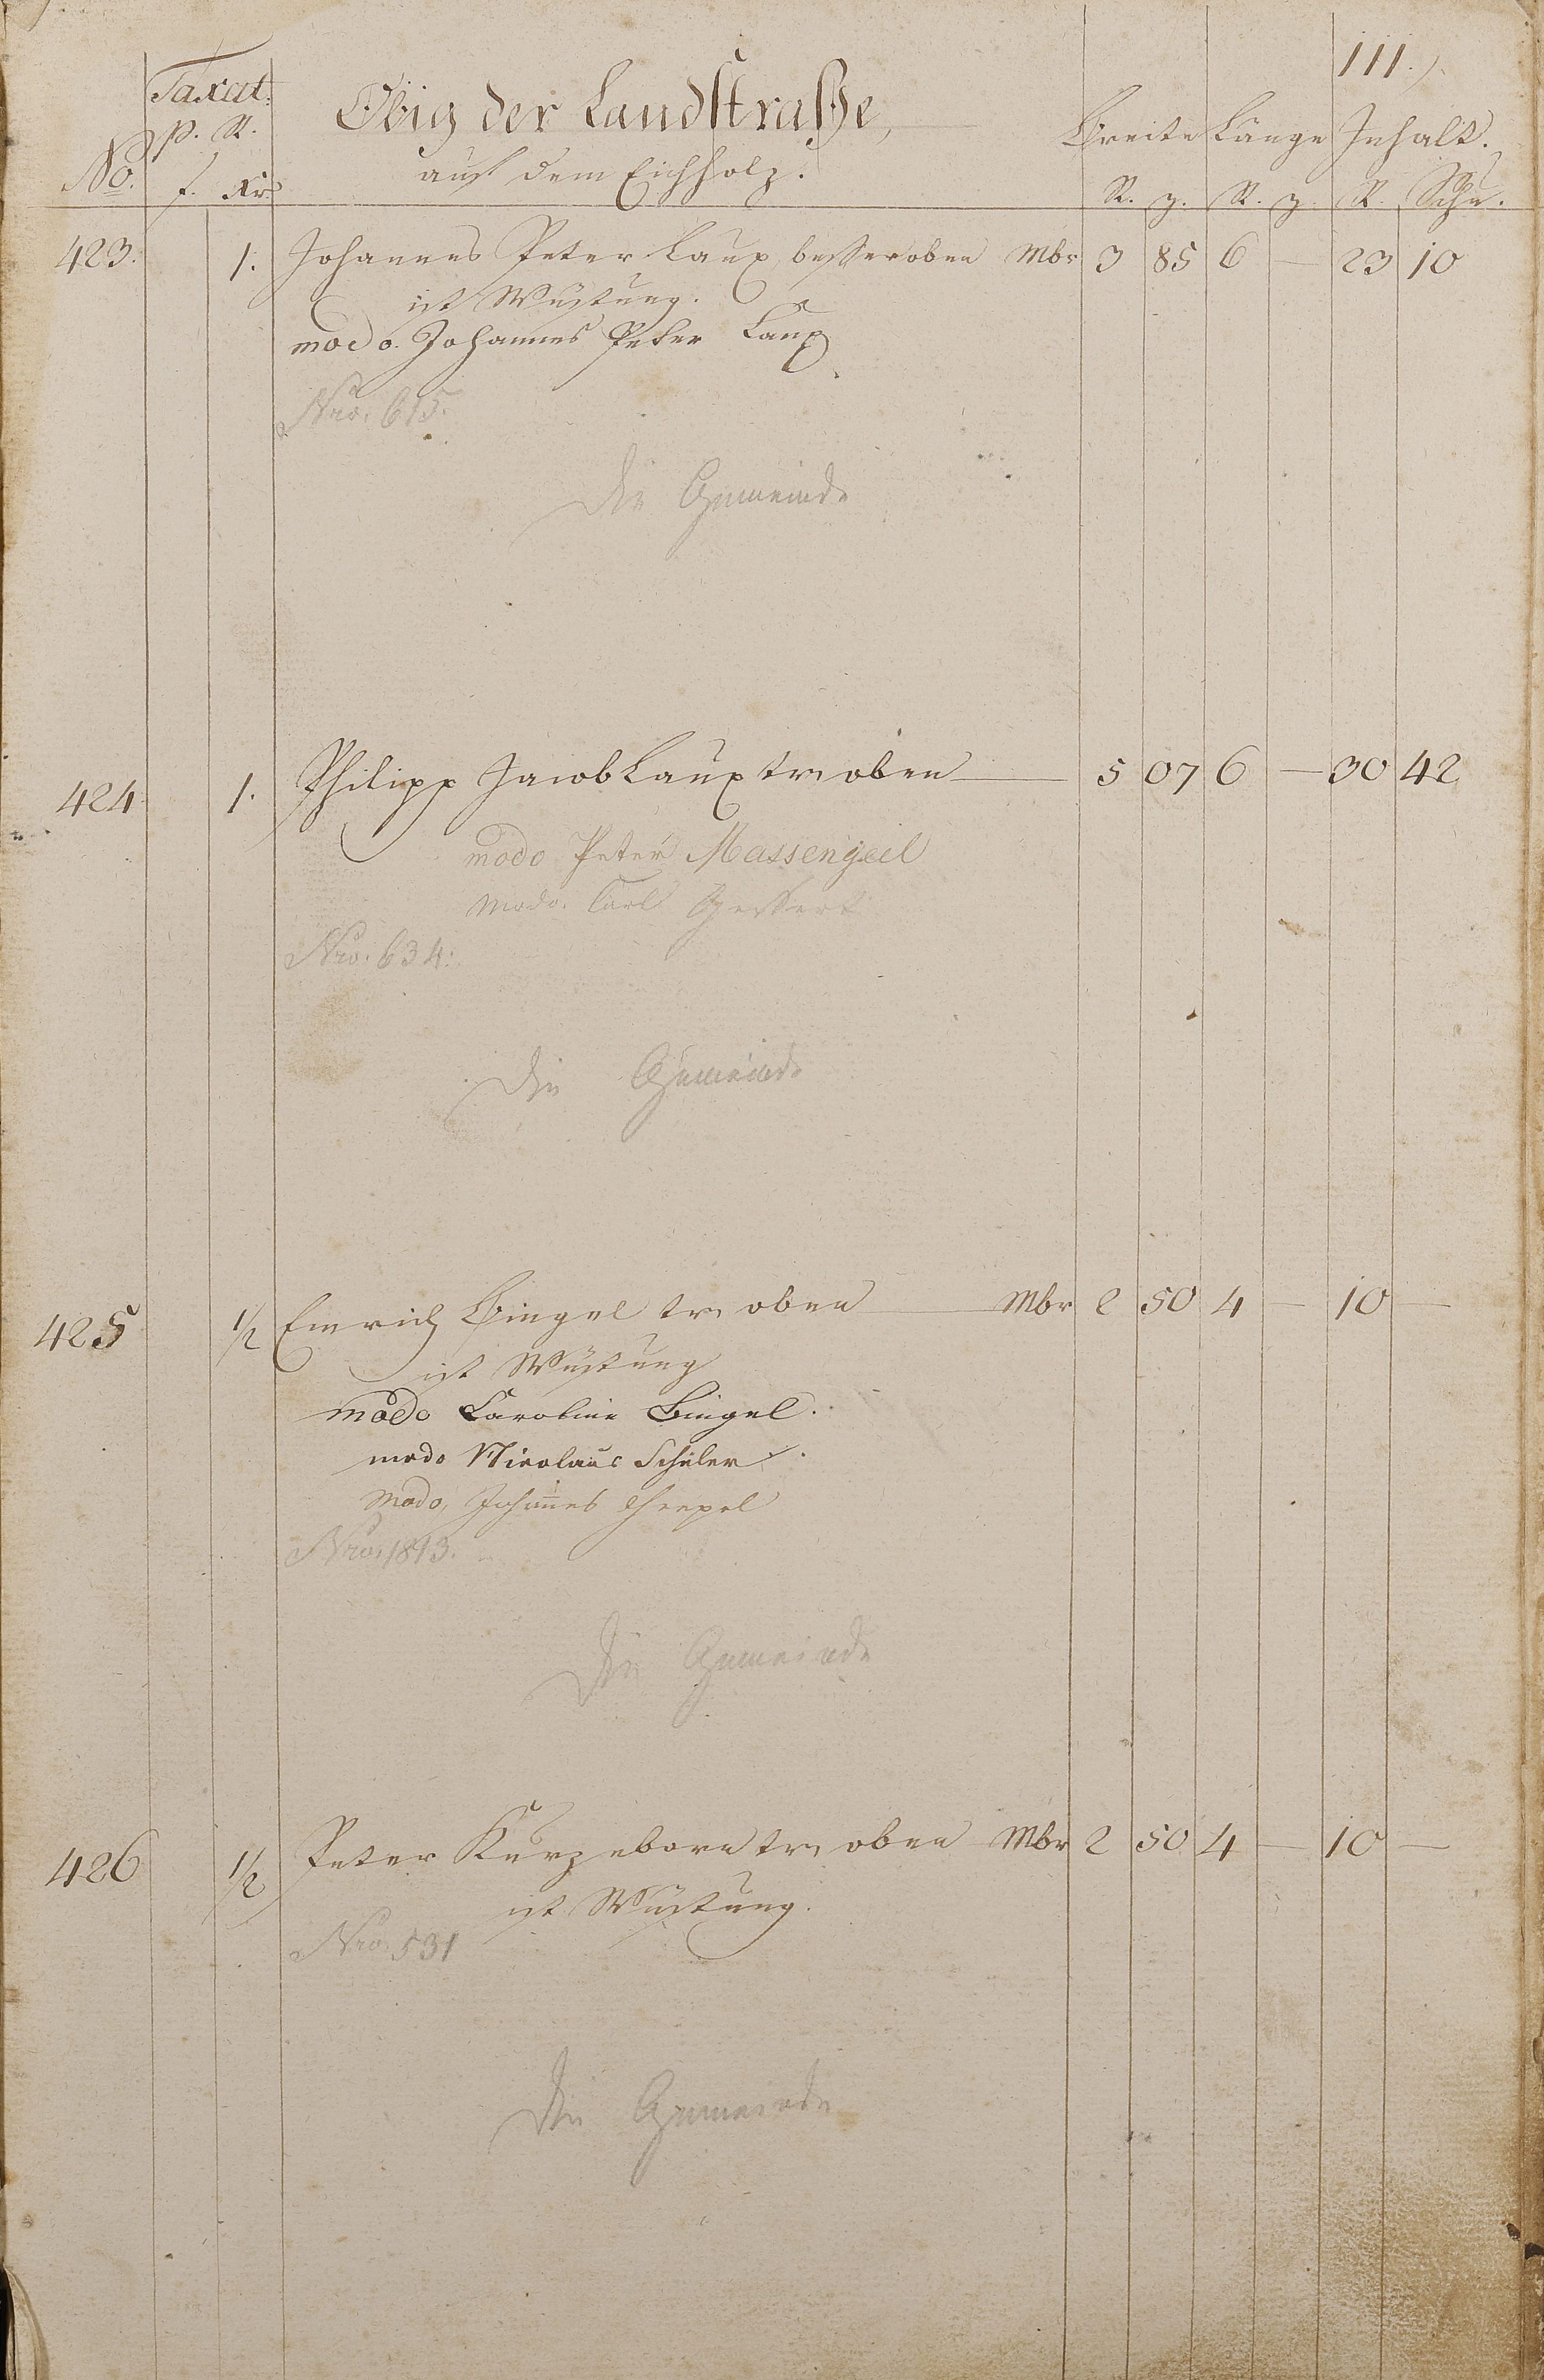 111.)
Taxat. Obig der Landstraße,
p. R. Breite Länge Inhalt.
No. f. Xr. auf dem Eichholz. R. z. R. z. R. Schu.
423. 1. Johannes Peter Laux, besser oben Mbr 3 85 6 — 23 10
ist Wüstung.
modo. Johannes Peter Laux
Nro. 615.
die Gemeinde
424 1. Philipp Jacob Laux tr. oben — 5 07 6 — 30 42
modo Peter Massengeil
modo. Carl Gessert
Nro. 634.
die Gemeinde
425 1/2 Emrich Bingel tr. oben — Mbr 2 50 4 — 10 —
ist Wüstung
modo Caroline Bingel.
modo Nicolaus Schüler.
modo, Johannes
Nro. 1813.
die Gemeinde
426 1/2 Peter Kurzeborn tr. oben Mbr 2 50 4 — 10 —
ist Wüstung.
Nro. 531
die Gemeinde